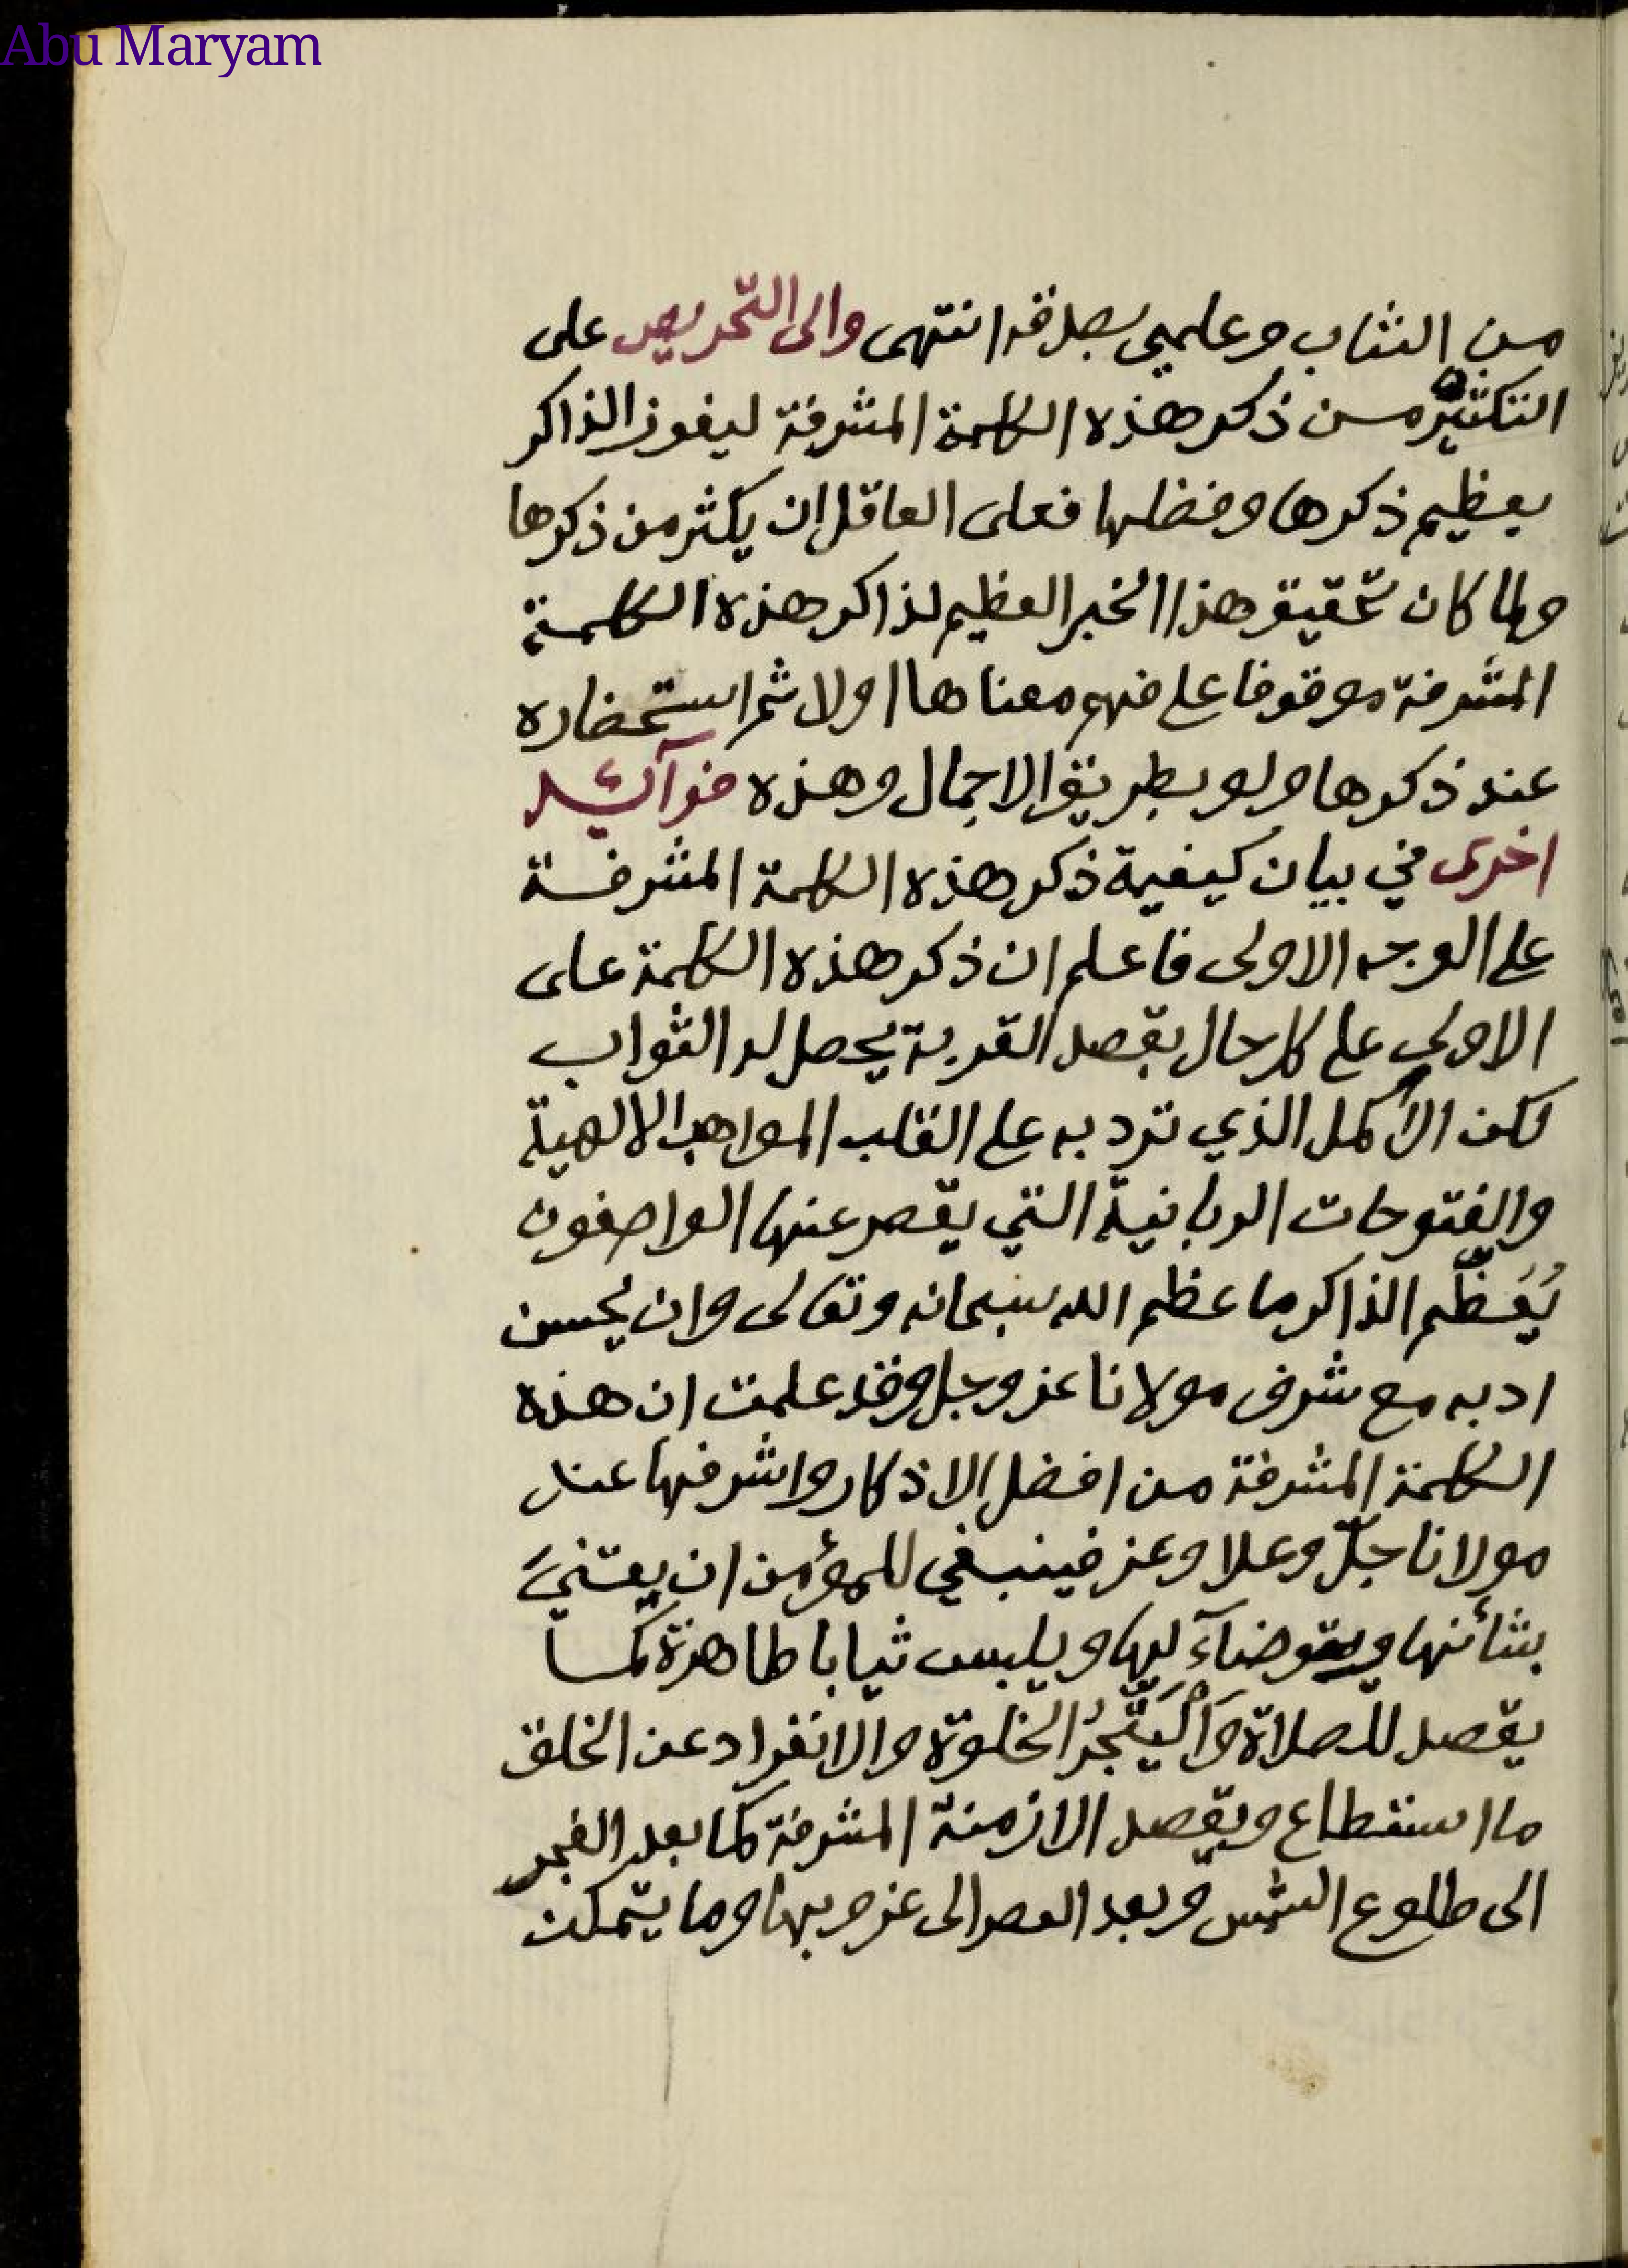 Abu Maryam
من الثاب وعلمي بصدقه انتهى والى التحريص على
التكثير من ذكر هذه الكلمة المشرفة ليفوز الذاكر
بعظيم ذكرها وفضلها فعلى العاقل ان يكثر من ذكرها
ولما كان تحقيق هذا الخبر العظيم لذاكر هذه الكلمة
المشرفة موقوفا على فهم معناها اولا ثم استحضاره
عند ذكرها ولو بطريق الاجمال وهذه فوآئد
اخرى في بيان كيفية ذكر هذه الكلمة المشرفة
على الوجه الاولى فاعلم ان ذكر هذه الكلمة على
الاولى على كل حال بقصد القربة يحصل له الثواب
لكن الأكمل الذي ترد به على القلب المواهب الالهية
والفتوحات الربانية التي يقصر عنها الواصفون
يُعَظِّم الذاكر ما عظم الله سبحانه وتعالى وان يحسن
ادبه مع شرف مولانا عز وجل وقد علمت ان هذه
الكلمة المشرفة من افضل الاذكار واشرفها عند
مولانا جلّ وعلا وعز فينبغي للمؤمن ان يعتنيَ
بشأنها ويتوضاء ليها ويلبس ثيابا طاهرة كما
يقصد للصلاة الخلوة والانفراد عن الخلق
ما استطاع ويقصد الازمنة المشرفة كما بعد الفجر
الى طلوع الشمس وبعد العصر الى غروبها وما يتمكن